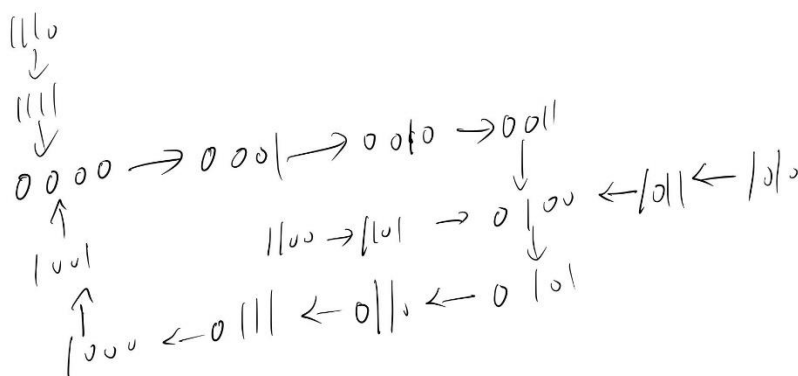 1110
↓
1111
↓
0000 → 0001 → 0010 → 0011
↑ ↓
1100 → 1101 → 0100 ← 1011 ← 1010
1001 ↓
↑
1000 ← 0111 ← 0110 ← 0101